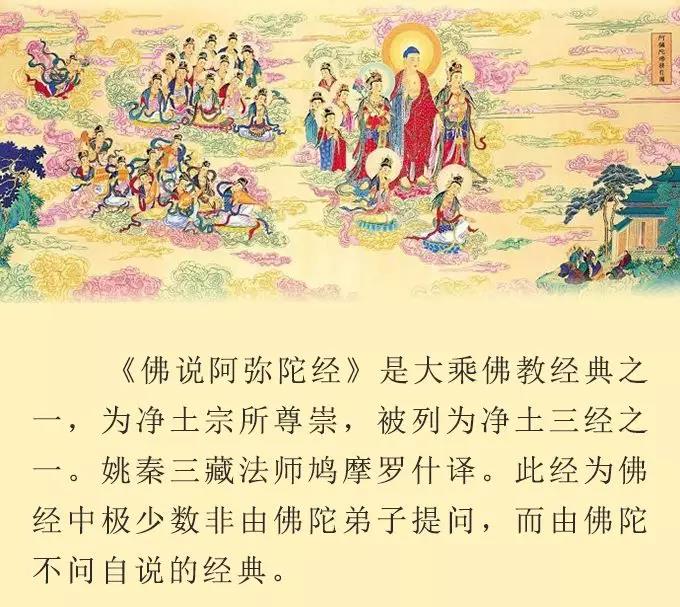 《佛说阿弥陀经》是大乘佛教经典之
一，为净土宗所尊崇，被列为净土三经之
一。姚秦三藏法师鸠摩罗什译。此经为佛
经中极少数非由佛陀弟子提问，而由佛陀
不问自说的经典。